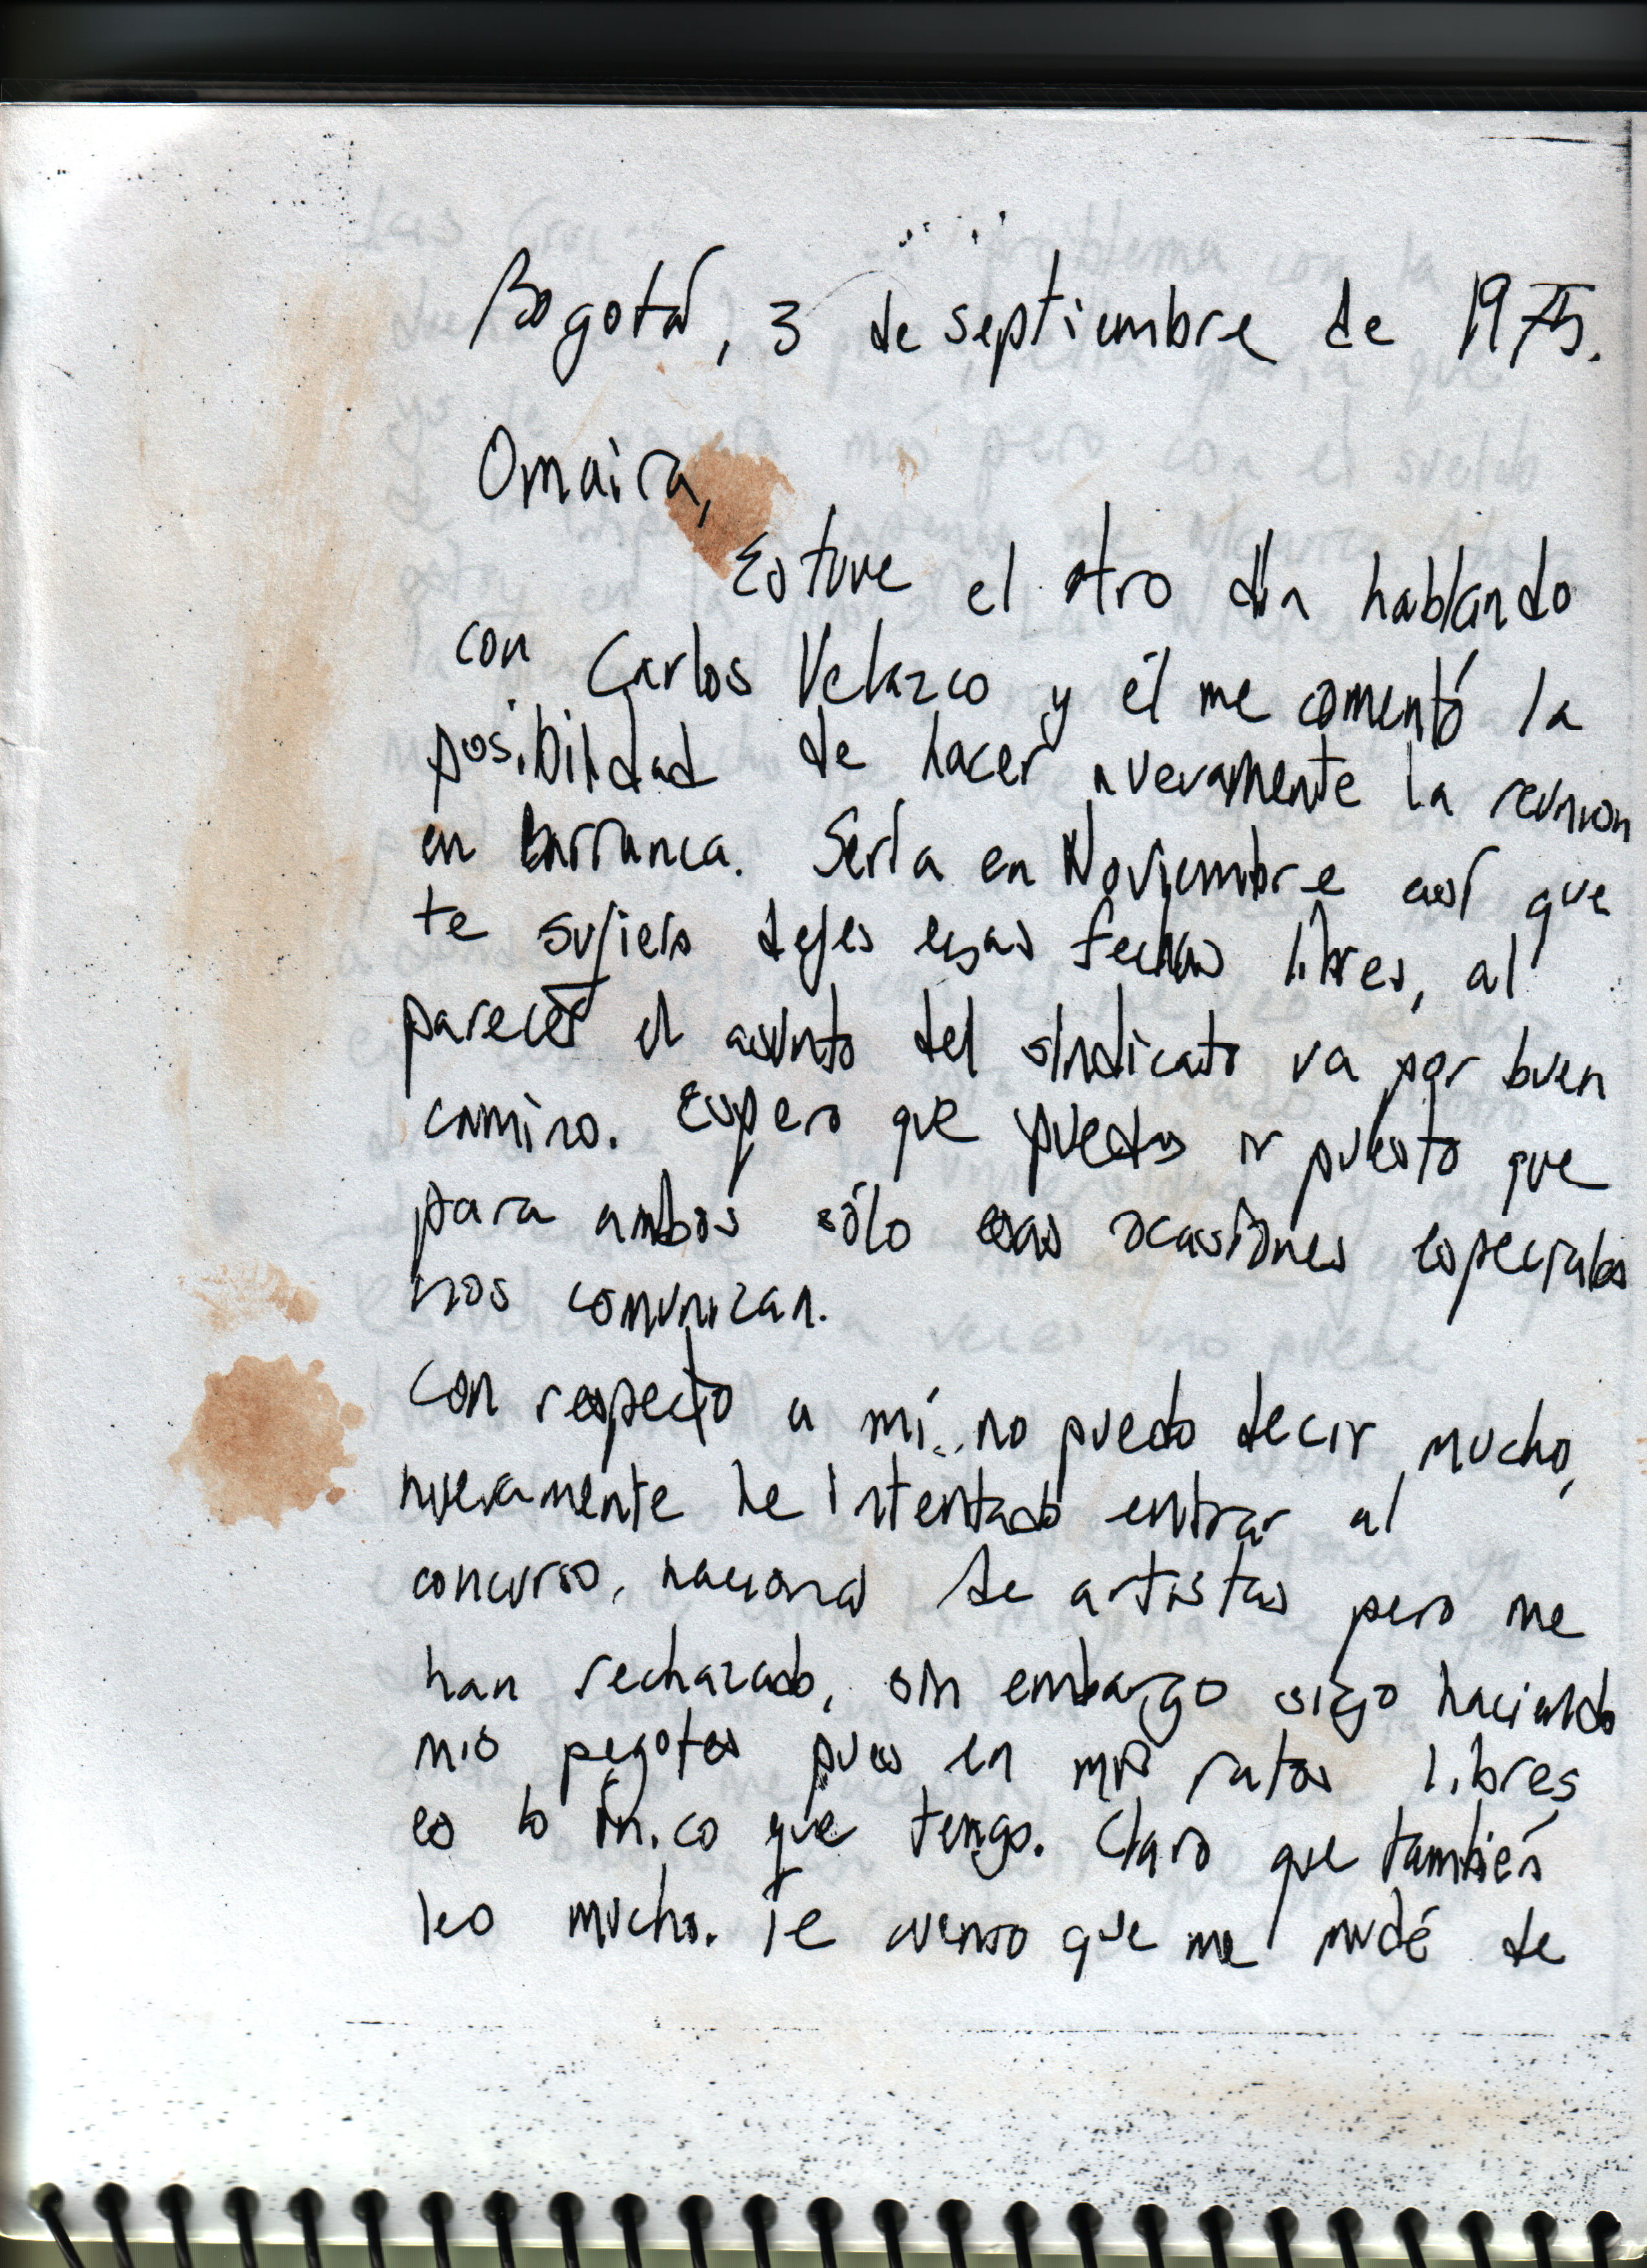 Bogotá, 3 de septiembre de 1975.
Omaira,
Estuve el otro día hablando
con Carlos Velazco y él me comentó la
posibilidad de hacer nuevamente la reunion
en Barranca. Sería en Noviembre así que
te sujiero dejes esas fechas libres, al
parecer el asunto del sindicato va por buen
camino. Espero que puedas ir puesto que
para ambos sólo esas ocasiones especiales
nos comunican.
Con respecto a mí no puedo decir mucho,
nuevamente he intentado entrar al
concurso nacional de artistas pero me
han rechazado, sin embargo sigo haciendo
mis pegotes pues en mis ratos libres
es lo único que tengo. Claro que también
leo mucho. Te cuento que me mudé de